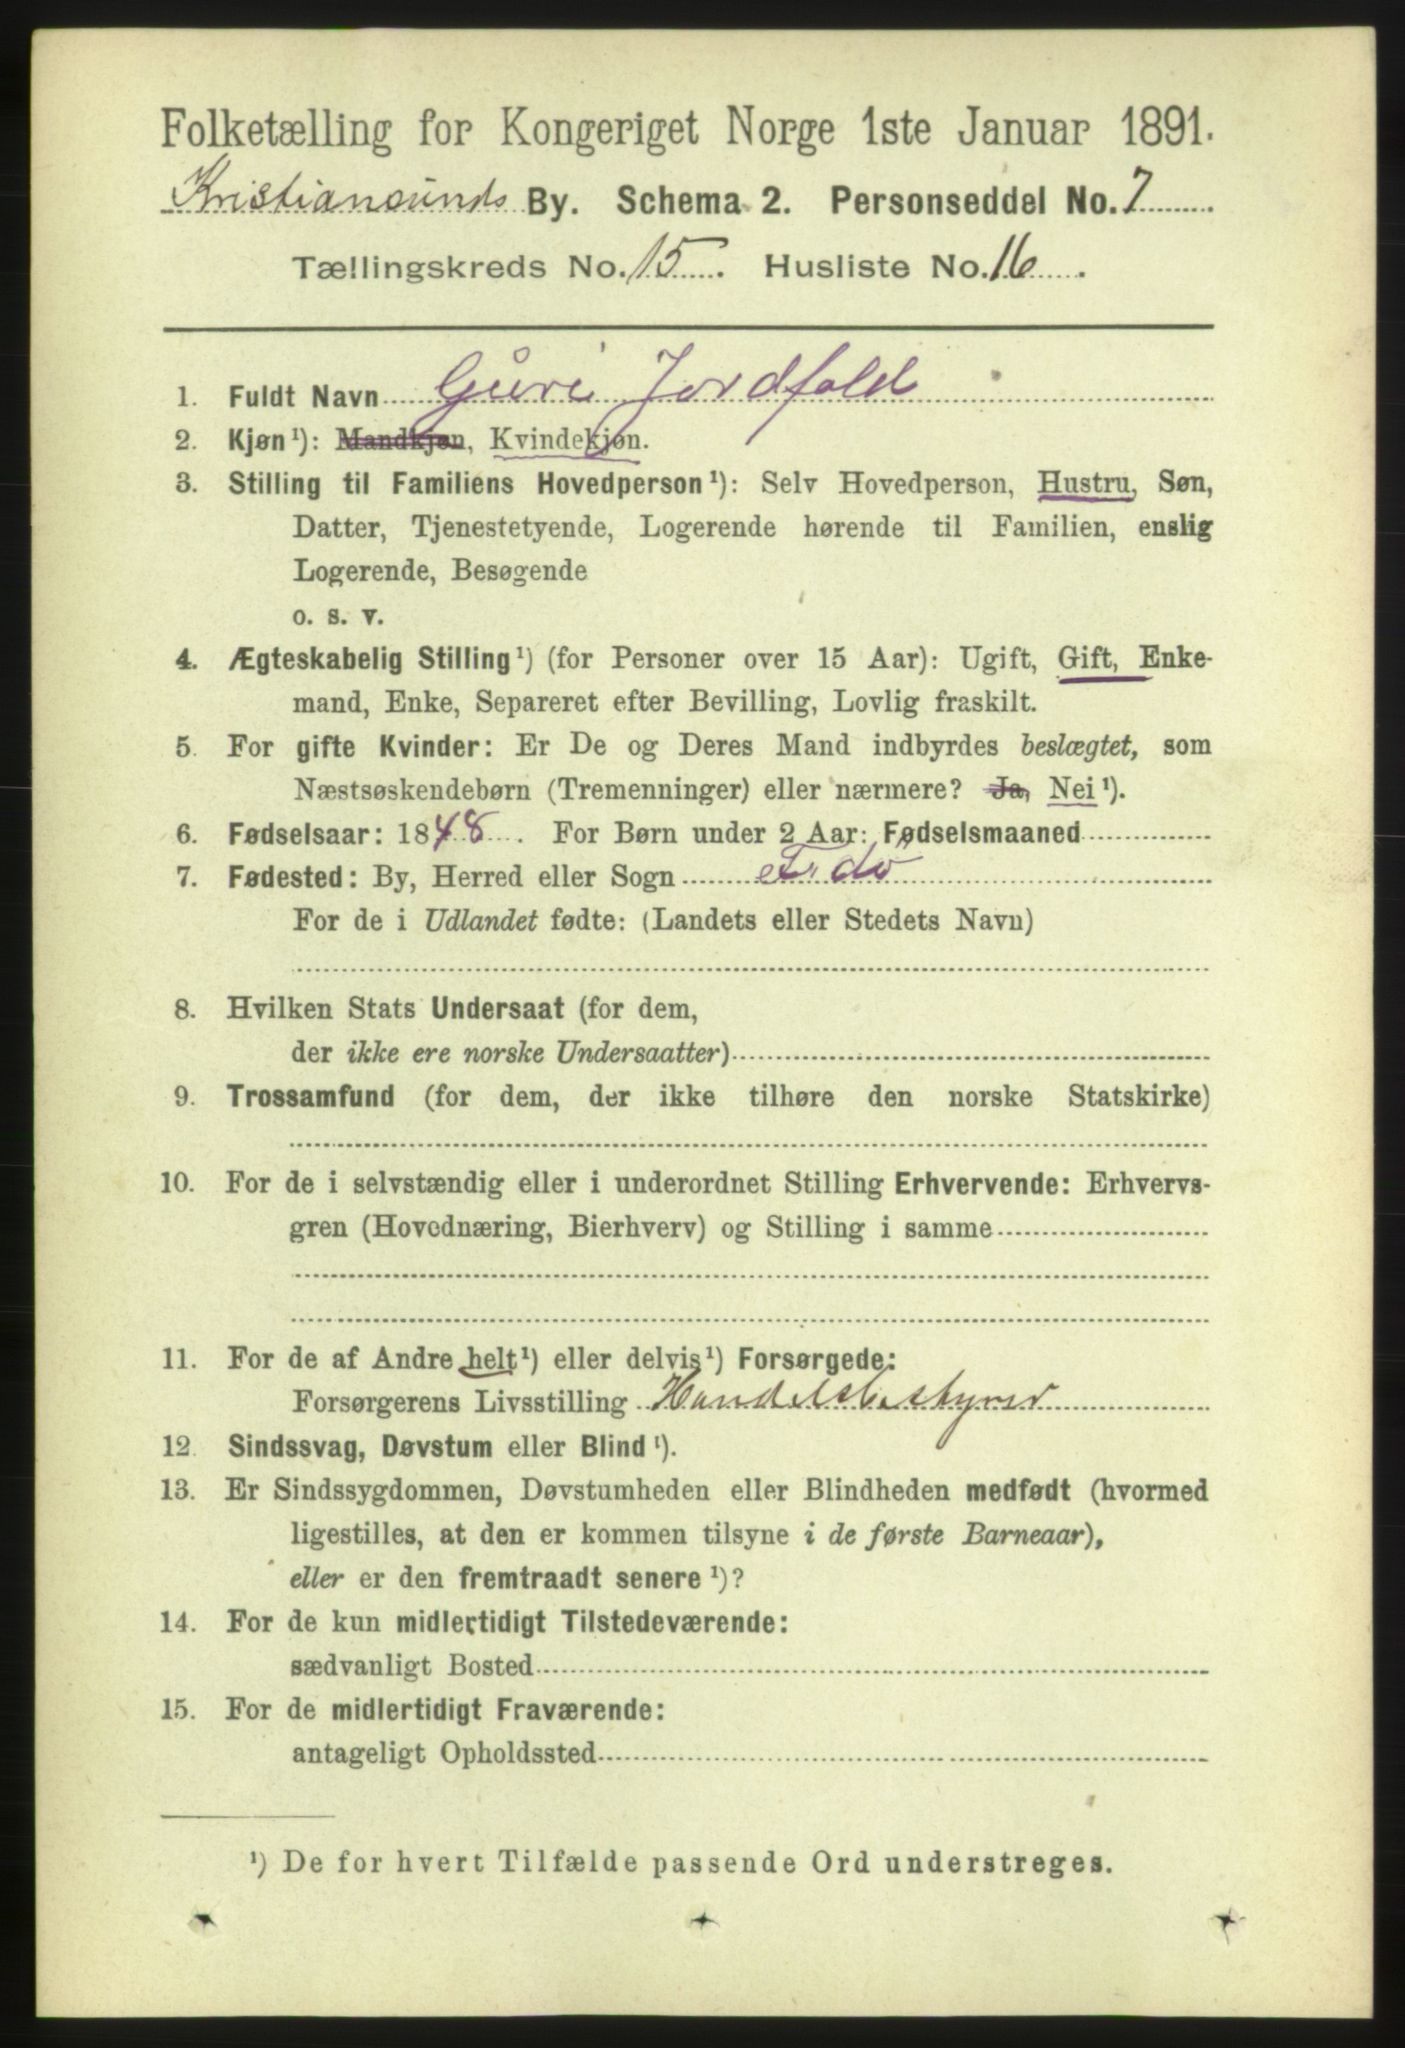 Folketælling for Kongeriget Norge 1ste Januar 1891.
Kristiansunds By. Schema 2. Personseddel No. 7
Tællingskreds No. 15. Husliste No. 16.
1. Fuldt Navn Guri Jordfald
2. Kjøn ¹): Mandkjøn, Kvindekjøn.
3. Stilling til Familiens Hovedperson ¹): Selv Hovedperson, Hustru, Søn,
Datter, Tjenestetyende, Logerende hørende til Familien, enslig
Logerende, Besøgende
o. s. v.
4. Ægteskabelig Stilling ¹) (for Personer over 15 Aar): Ugift, Gift, Enke-
mand, Enke, Separeret efter Bevilling, Lovlig fraskilt.
5. For gifte Kvinder: Er De og Deres Mand indbyrdes beslægtet, som
Næstsøskendebørn (Tremenninger) eller nærmere? Ja, Nei ¹).
6. Fødselsaar: 1848. For Børn under 2 Aar: Fødselsmaaned
7. Fødested: By, Herred eller Sogn
For de i Udlandet fødte: (Landets eller Stedets Navn)
8. Hvilken Stats Undersaat (for dem,
der ikke ere norske Undersaatter)
9. Trossamfund (for dem, der ikke tilhøre den norske Statskirke)
10. For de i selvstændig eller i underordnet Stilling Erhvervende: Erhvervs-
gren (Hovednæring, Bierhverv) og Stilling i samme
11. For de af Andre helt ¹) eller delvis ¹) Forsørgede:
Forsørgerens Livsstilling Handelsbestyrer
12. Sindssvag, Døvstum eller Blind ¹).
13. Er Sindssygdommen, Døvstumheden eller Blindheden medfødt (hvormed
ligestilles, at den er kommen tilsyne i de første Barneaar),
eller er den fremtraadt senere ¹)?
14. For de kun midlertidigt Tilstedeværende:
sædvanligt Bosted
15. For de midlertidigt Fraværende:
antageligt Opholdssted
¹) De for hvert Tilfælde passende Ord understreges.